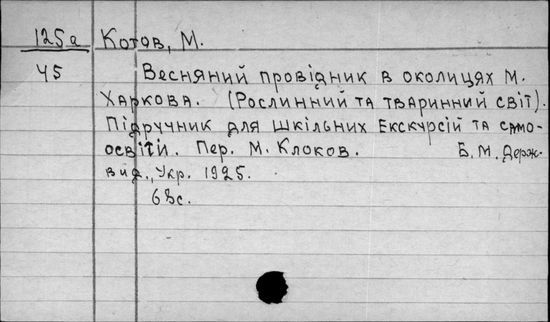 125а Котов, М.
45 Весняний провідник в околицях М.
Харкова. (Рослинний та тваринний світ).
Підручник для шкільних екскурсій та само-
освіти. Пер. М. Клоков. Б. М. Держ-
вид., Укр. 1925.
68с.